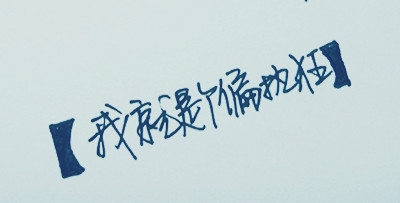 【我就是个偏执狂】